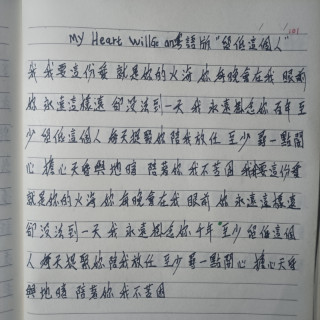 My Heart Will Go on 粵語版 "留低這個人"
我 我要這份愛 就是你的火海 你每晚會在我 眼前
你 永遠這樣遠 卻沒法到一天 我 永遠想念你 百年 至
少 留低這個人 每天提緊你 陪我放任 至少 尋一點開
心 擔心天昏與地暗 陪著你 我不苦困 我我要這份愛
就是你的火海 你每晚會在我 眼前 你 永遠這樣遠
卻沒法到一天 我 永遠想念你 千年 至少 留低這個
人 每天提緊你 陪我放任 至少 尋一點開心 擔心天昏
與地暗 陪著你 我不苦困